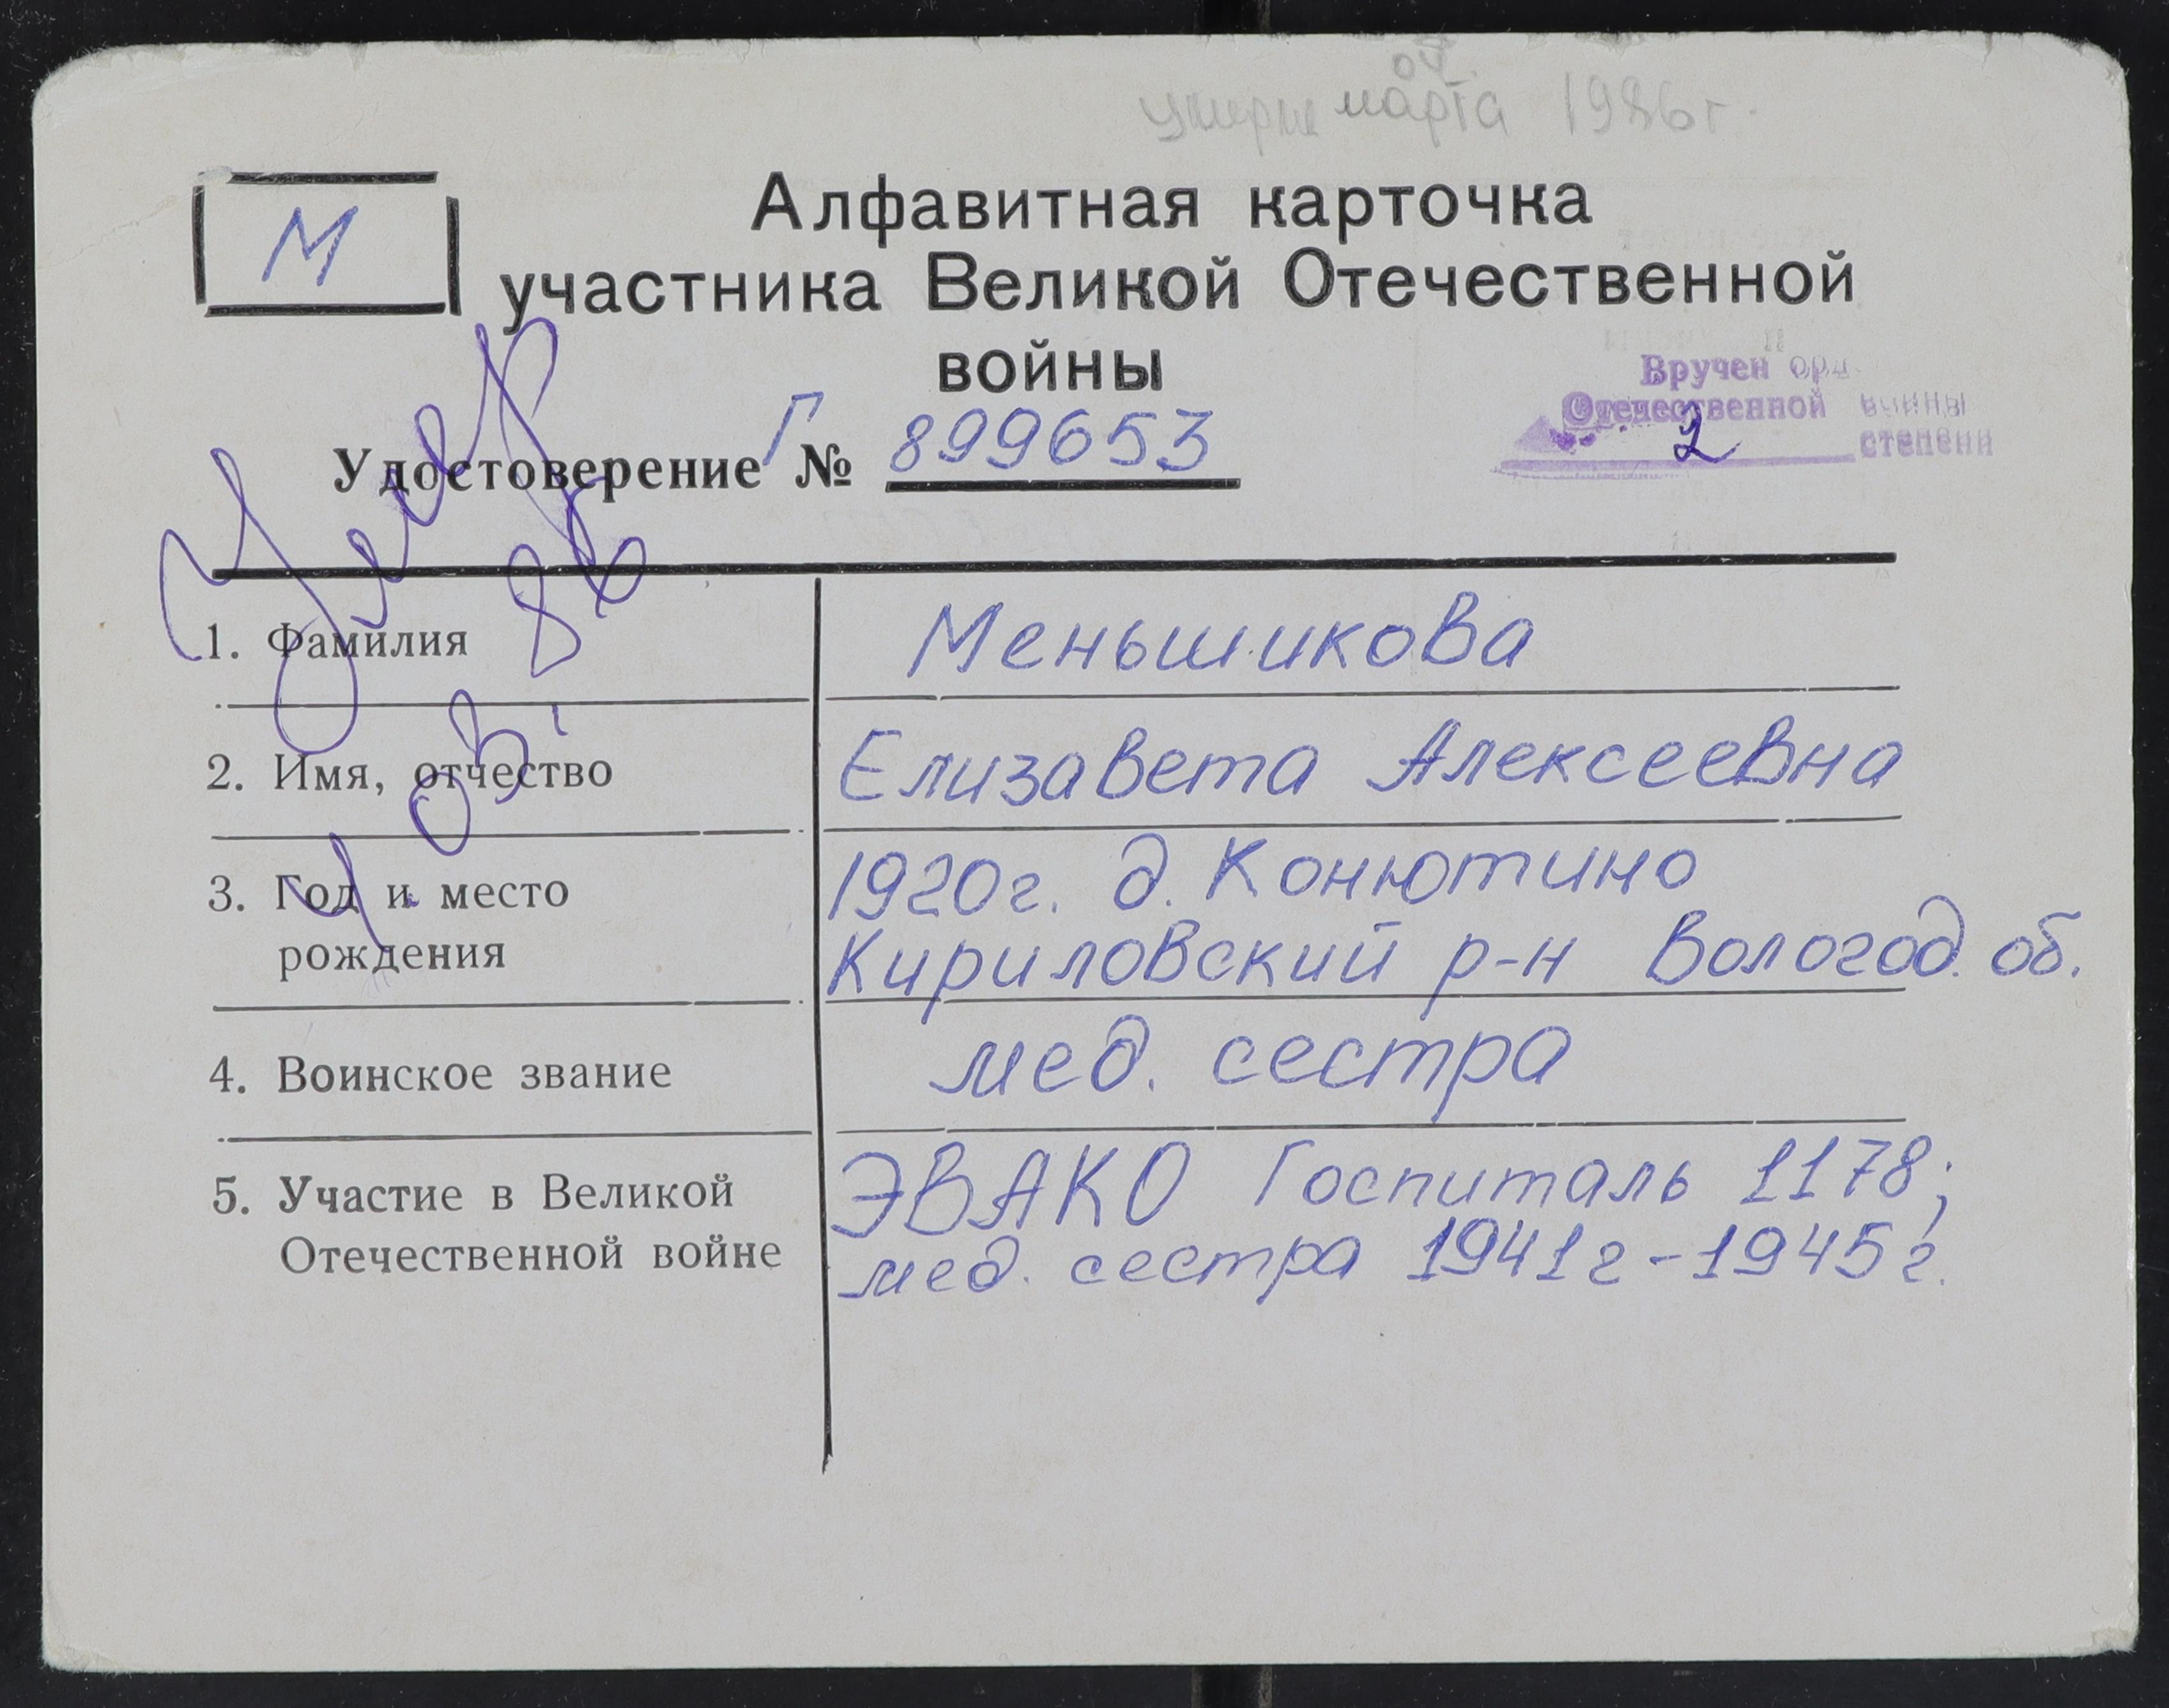 04.
умерла марта 1986 г.
М
Алфавитная карточка
участника Великой Отечественной
войны
Вручен орд.
Отечественной войны
2 степени
Удостоверение Г № 899653
Умер
86
4 03
1. Фамилия Меньшикова
2. Имя, отчество Елизавета Алексеевна
3. Год и место 1920г. д. Конютино
рождения Кириловский р-н Вологод. об.
4. Воинское звание мед. сестра
5. Участие в Великой ЭВАКО Госпиталь 1178;
Отечественной войне мед. сестра 1941г-1945г.